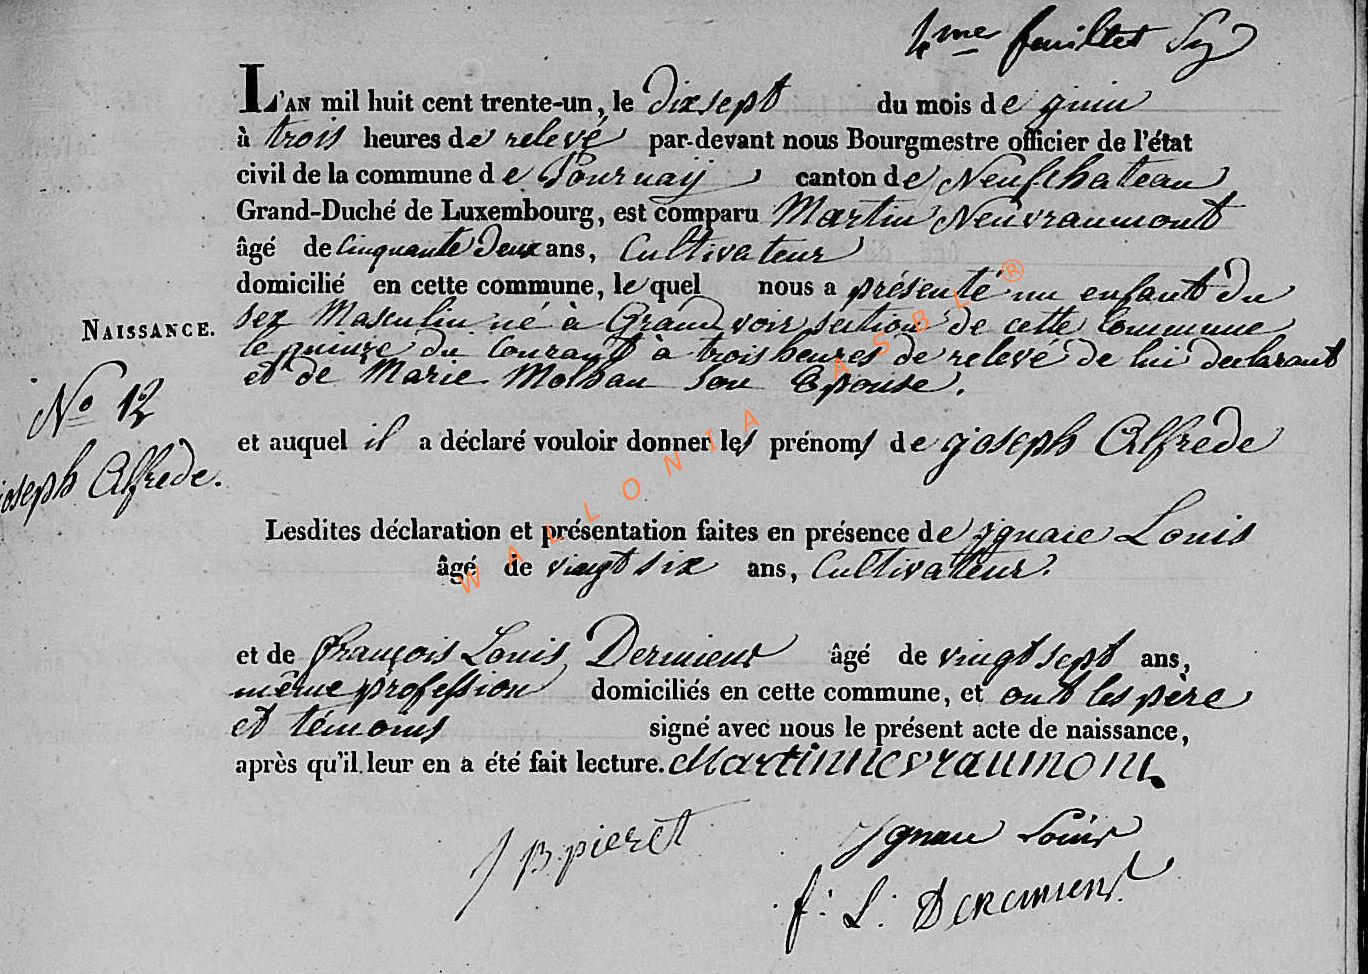 4me feuillet
L'AN mil huit cent trente-un, le dixsept du mois de juin
à trois heures de relevé par-devant nous Bourgmestre officier de l'état
civil de la commune de Tournay canton de Neufchateau
Grand-Duché de Luxembourg, est comparu Martin Neuvraumont
âgé de Cinquante deux ans, Cultivateur
domicilié en cette commune, le quel nous a présenté un enfant du
sex Masculin né à Grandvoir section de cette Commune
le quinze du Courant à trois heures de relevé de lui declarant
et de Marie Molhan son Epouse.
NAISSANCE.
No 12
joseph Alfrede.
et auquel il a déclaré vouloir donner les prénoms de joseph Alfrede
Lesdites déclaration et présentation faites en présence de Ignace Louis
âgé de vingt six ans, Cultivateur.
et de françois Louis Dermient âgé de vingt sept ans,
même profession domiciliés en cette commune, et ont les père
et témoins signé avec nous le présent acte de naissance,
après qu'il leur en a été fait lecture. Martin nevraumont
J B pieret
Ignace Louis
f: L: Deremient
WALLONIA ASBL ®